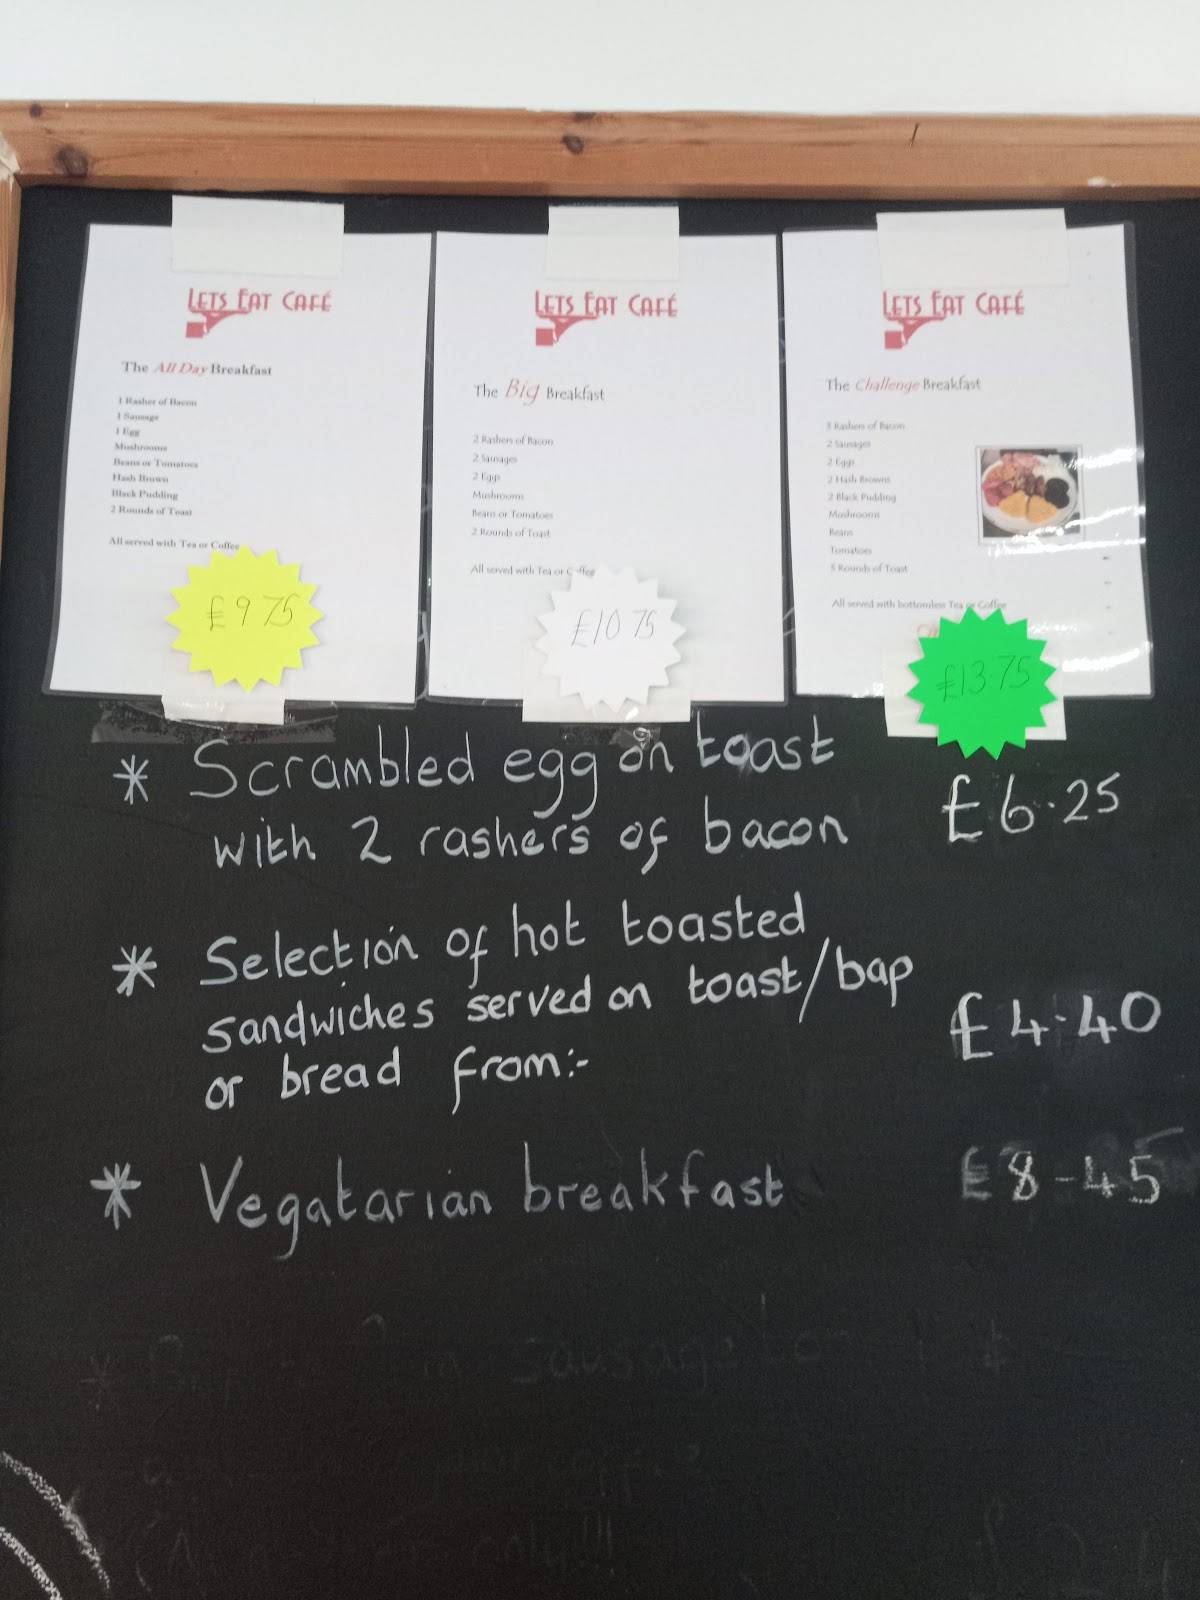 LETS EAT CAFÉ
The All Day Breakfast
1 Rasher of Bacon
1 Sausage
1 Egg
Mushrooms
Beans or Tomatoes
Hash Brown
Black Pudding
2 Rounds of Toast
All served with Tea or Coffee
£9 75
LETS EAT CAFÉ
The Big Breakfast
2 Rashers of Bacon
2 Sausages
2 Eggs
Mushrooms
Beans or Tomatoes
2 Rounds of Toast
All served with Tea or Coffee
£10 75
LETS EAT CAFÉ
The Challenge Breakfast
3 Rashers of Bacon
2 Sausages
2 Eggs
2 Hash Browns
2 Black Pudding
Mushrooms
Beans
Tomatoes
3 Rounds of Toast
All served with bottomless Tea or Coffee
£13.75
* Scrambled egg on toast
with 2 rashers of bacon £6.25
* Selection of hot toasted
sandwiches served on toast/bap
or bread from:- £4-40
* Vegatarian breakfast £8-45
sausage
only!!!